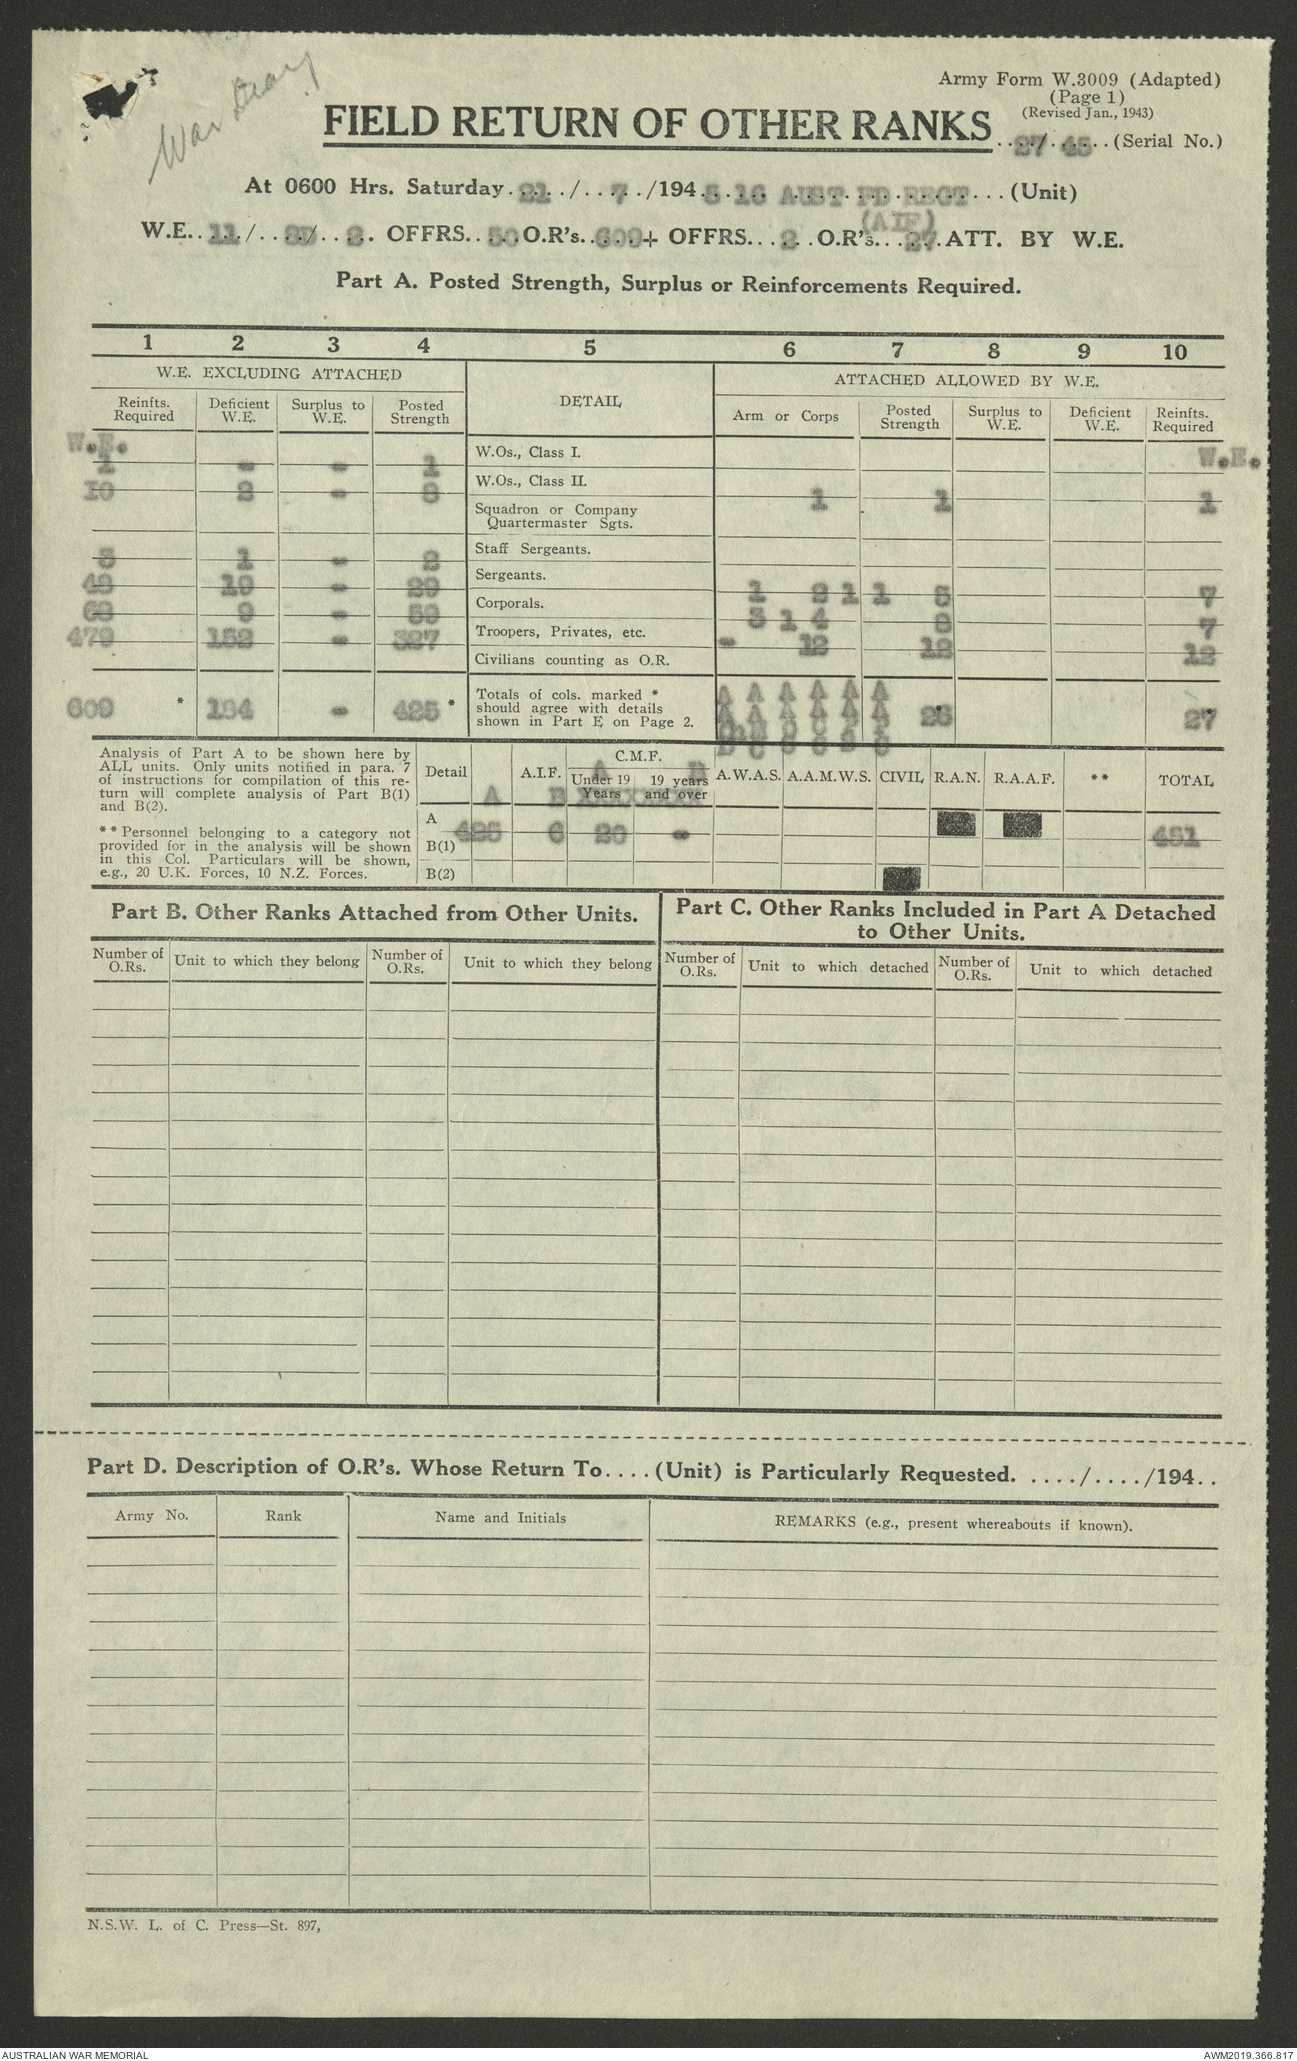 War Diary
Army Form W.3009 (Adapted)
(Page 1)
(Revised Jan., 1943)
FIELD RETURN OF OTHER RANKS
27/45 (Serial No.)
At 0600 Hrs. Saturday 21/7/1945 16 AUST FD REGT (Unit)
(AIF)
W.E. 11/ / 2. OFFRS. 50 O.R's. 609+ OFFRS. 2 O.R's. 27 ATT. BY W.E.
Part A. Posted Strength, Surplus or Reinforcements Required.
1 2 3 4 5 6 7 8 9 10
W.E. EXCLUDING ATTACHED
DETAIL
ATTACHED ALLOWED BY W.E.
Reinfts. Required
Deficient W.E.
Surplus to W.E.
Posted Strength
Arm or Corps
Posted Strength
Surplus to W.E.
Deficient W.E.
Reinfts. Required
W.E.
W.E.
1 - - 1 W.Os., Class I.
10 2 - 8 W.Os., Class II. 1 1 1
Squadron or Company Quartermaster Sgts.
3 1 - 2 Staff Sergeants.
48 19 - 29 Sergeants. 1 2 1 1 7
68 9 - 59 Corporals. 3 1 4 8 7
479 152 - 327 Troopers, Privates, etc. - 12 12 12
Civilians counting as O.R.
609 * 184 - 425 * Totals of cols. marked * should agree with details shown in Part E on Page 2. 26 27
A A A A A A
A A A A A A
Analysis of Part A to be shown here by
ALL units. Only units notified in para. 7
of instructions for compilation of this re-
turn will complete analysis of Part B(1)
and B(2).
** Personnel belonging to a category not
provided for in the analysis will be shown
in this Col. Particulars will be shown,
e.g., 20 U.K. Forces, 10 N.Z. Forces.
Detail A.I.F. C.M.F. A.W.A.S. A.A.M.W.S. CIVIL R.A.N. R.A.A.F. ** TOTAL
Under 19 Years
19 years and over
A B A B
A 425 6 20 - 451
B(1)
B(2)
Part B. Other Ranks Attached from Other Units.
Part C. Other Ranks Included in Part A Detached
to Other Units.
Number of O.Rs.
Unit to which they belong
Number of O.Rs.
Unit to which they belong
Number of O.Rs.
Unit to which detached
Number of O.Rs.
Unit to which detached
Part D. Description of O.R's. Whose Return To....(Unit) is Particularly Requested. ..../..../194..
Army No. Rank Name and Initials REMARKS (e.g., present whereabouts if known).
N.S.W. L. of C. Press—St. 897,
AUSTRALIAN WAR MEMORIAL
AWM2019.366.817